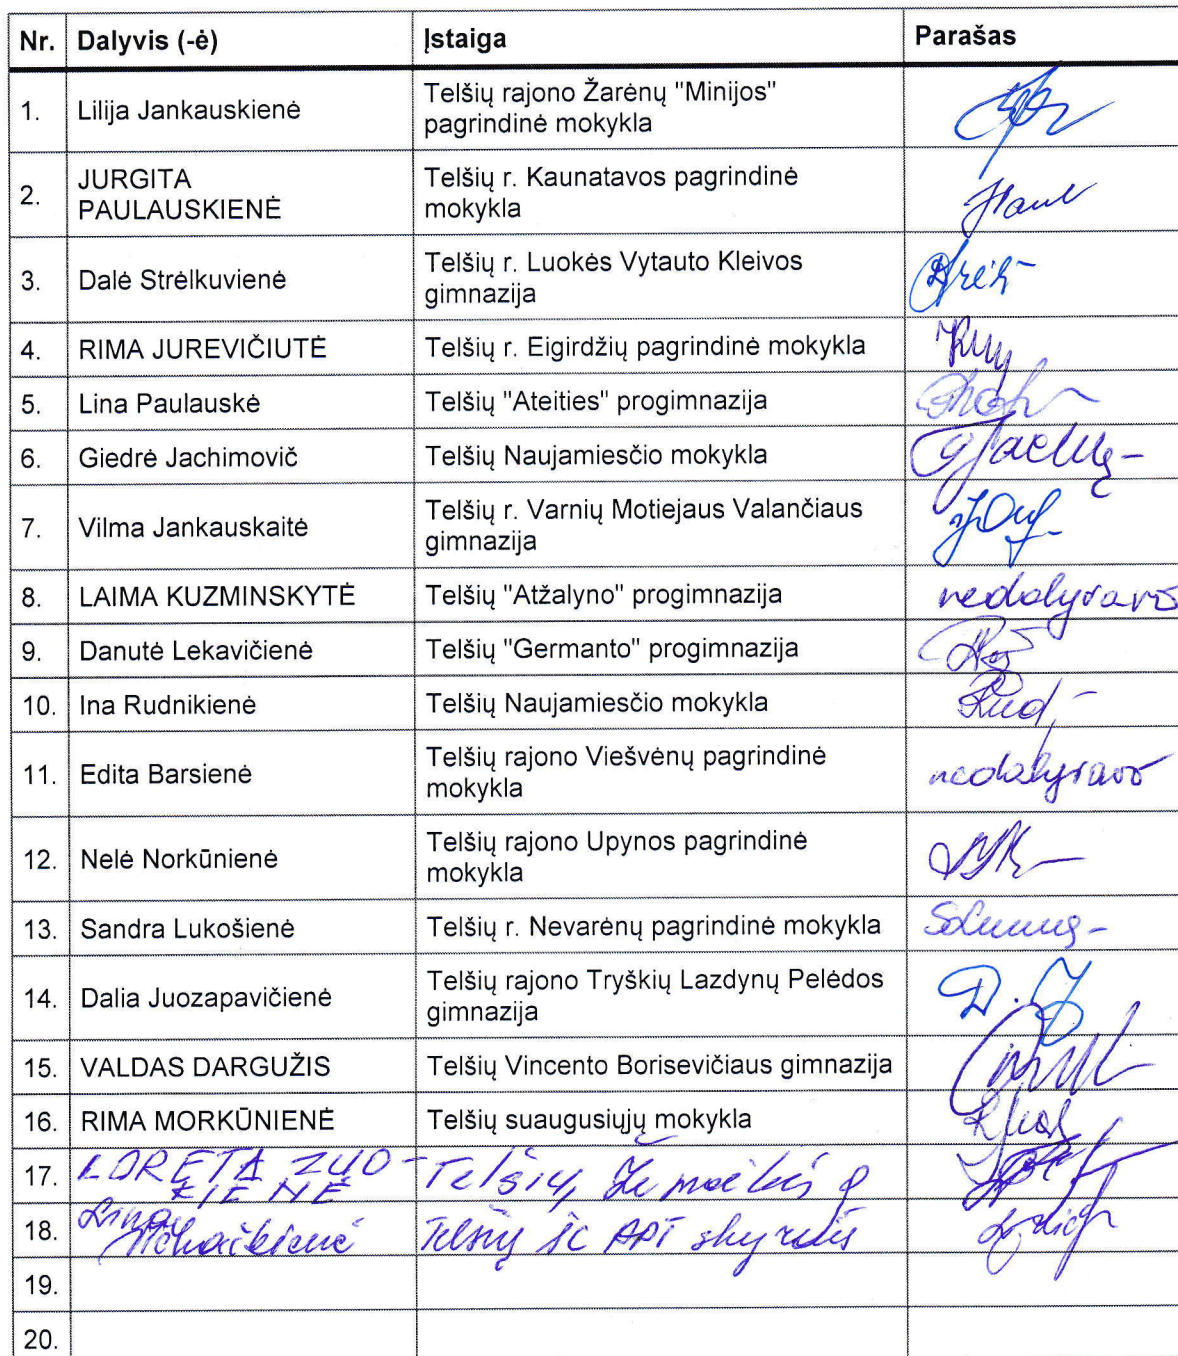 Nr. Dalyvis (-ė) Įstaiga Parašas
1. Lilija Jankauskienė Telšių rajono Žarėnų "Minijos"
pagrindinė mokykla
2. JURGITA
PAULAUSKIENĖ Telšių r. Kaunatavos pagrindinė
mokykla
3. Dalė Strėlkuvienė Telšių r. Luokės Vytauto Kleivos
gimnazija
4. RIMA JUREVIČIUTĖ Telšių r. Eigirdžių pagrindinė mokykla
5. Lina Paulauskė Telšių "Ateities" progimnazija
6. Giedrė Jachimovič Telšių Naujamiesčio mokykla
7. Vilma Jankauskaitė Telšių r. Varnių Motiejaus Valančiaus
gimnazija
8. LAIMA KUZMINSKYTĖ Telšių "Atžalyno" progimnazija nedalyvavo
9. Danutė Lekavičienė Telšių "Germanto" progimnazija
10. Ina Rudnikienė Telšių Naujamiesčio mokykla
11. Edita Barsienė Telšių rajono Viešvėnų pagrindinė
mokykla nedalyvavo
12. Nelė Norkūnienė Telšių rajono Upynos pagrindinė
mokykla
13. Sandra Lukošienė Telšių r. Nevarėnų pagrindinė mokykla
14. Dalia Juozapavičienė Telšių rajono Tryškių Lazdynų Pelėdos
gimnazija D. J
15. VALDAS DARGUŽIS Telšių Vincento Borisevičiaus gimnazija
16. RIMA MORKŪNIENĖ Telšių suaugusiųjų mokykla
17. LORETA Telšių, Žemaitės g
18. Lina Telšių ŠC APT skyrius
19.
20.